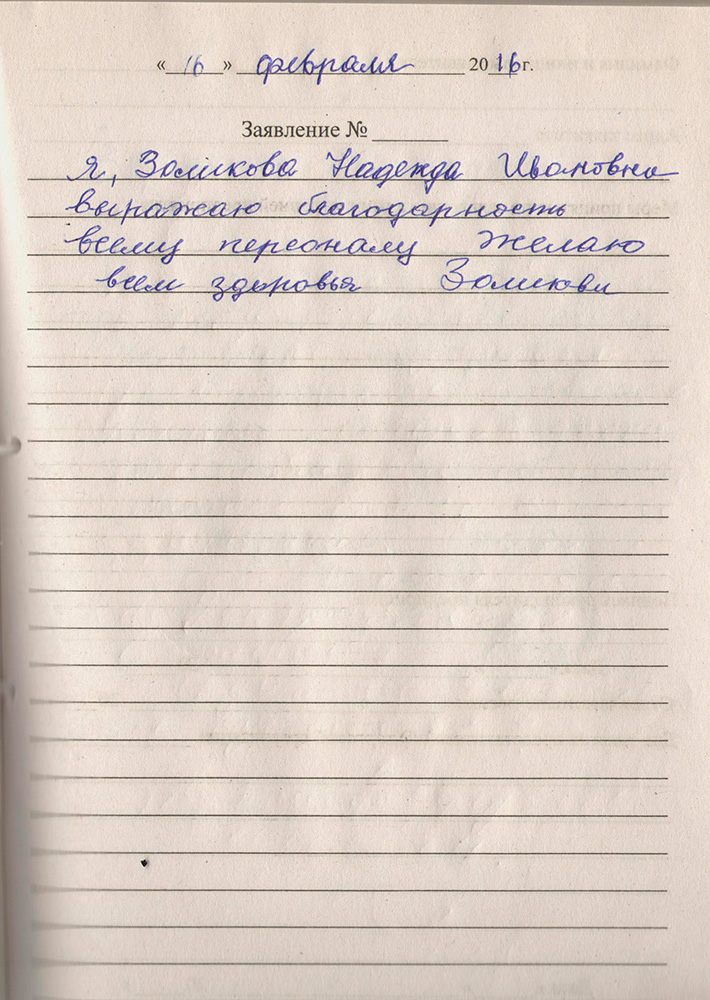 « 16 » февраля 2016г.
Заявление №
Я, Золикова Надежда Ивановна
выражаю благодарность
всему персоналу Желаю
всем здоровья